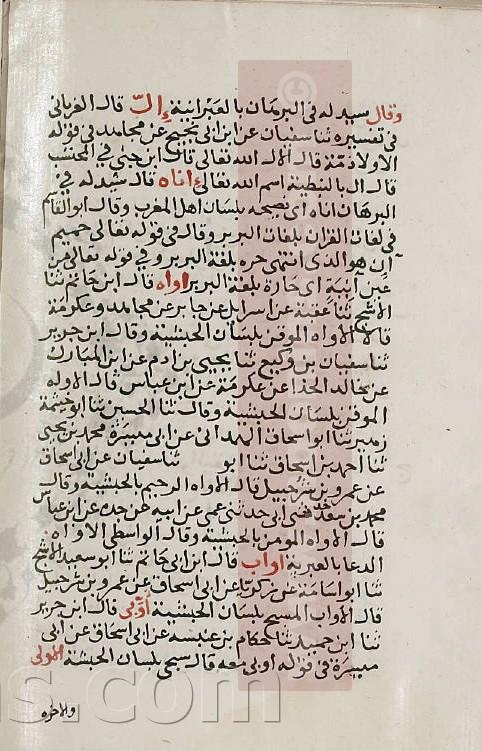 وقال شيدله في البرهان بالعبرانية إلّ قال الفريابي
في تفسيره ثنا سفيان عن ابن ابي نجيح عن مجاهد في قوله
الا ولا ذمة قال الال الله تعالى قال ابن جنى في المحتسب
قال ال بالنبطية اسم الله تعالى اناه قال شيدله في
البرهان اناه اى نضجه بلسان اهل المغرب وقال ابو القاسم
في لغات القران بلغات البربر وقال في قوله تعالى حميم
آن هو الذى انتهى حره بلغة البربر وفي قوله تعالى من
عين آنية اى حارة بلغة البربر اواه قال ابن حاتم ثنا
الاشج ثنا عقبة عن اسرايل عن جابر عن مجاهد وعكرمة
قالا الاواه الموقن بلسان الحبشية وقال ابن جرير
ثنا سفيان بن وكيع ثنا يحيى بن ادم عن ابن المبارك
عن خالد الحذا عن عكرمة عن ابن عباس قال الاواه
الموقن بلسان الحبشية وقال ثنا الحسين ثنا ابو خيثمة
زهير ثنا ابو اسحاق الهمدانى عن ابى ميسرة محمد بن يحيى
ثنا احمد بن اسحاق ثنا ابو ثنا سفيان عن ابى اسحاق
عن عمرو بن شرحبيل قال الاواه الرحيم بالحبشية وقال
محمد بن سعد ثنى ابى حدثنى عمى عن ابيه عن جده عن ابن عباس
قال الاواه المومن بالحبشية وقال الواسطى الاواه
الدعا بالعبرية اواب قال ابن ابى حاتم ثنا ابو سعيد الاشج
ثنا ابو اسامة عن زكريا عن ابى اسحاق عن عمرو بن شرحبيل
قال الاواب المسبح بلسان الحبشية أوّبى قال ابن جرير
ثنا ابن حميد ثنا حكام بن عنبسه عن ابى اسحاق عن ابى
ميسرة في قوله اوبى معه قال سبحى بلسان الحبشة الاولى
والاخره
ns.com